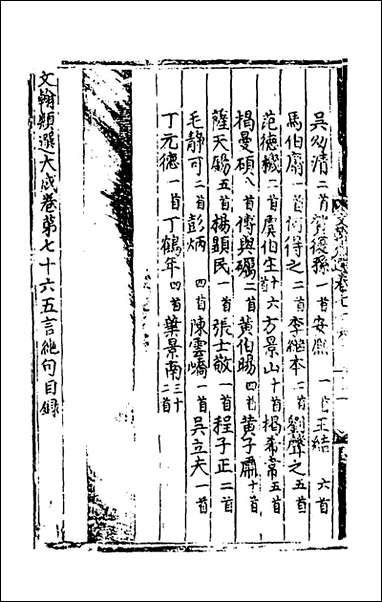 吳幼清二首 贺後孫一首 安熙一首 王結六首
馬伯庸一首 何得之二首 李繼本二首 劉聲之五首
范德機二首 虞伯生十六首 方景山十首 揭希常五首
揭曼碩八首 傅與礪二首 黃伯暘四首 黃子肅十首
薩天錫五首 楊顯民一首 張士敬一首 程子正二首
毛靜可二首 彭炳四首 陳雲嶠一首 吳立夫一首
丁元德一首 丁鶴年四首 葉景南三十二首
文翰類選大成卷第七十六五言絕句目錄